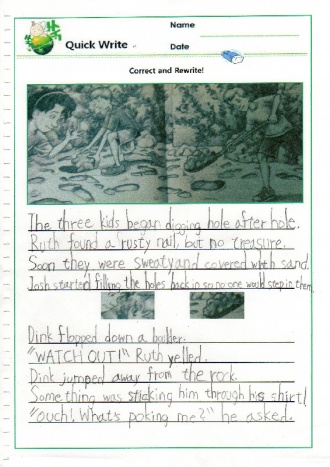 Quick Write
Name
Date
Correct and Rewrite!
The three kids began digging hole after hole.
Ruth found a rusty nail, but no treasure.
Soon they were sweaty and covered with sand.
Josh started filling the holes back in so no one would step in them.
Dink flopped down a bolder.
"WATCH OUT!" Ruth yelled.
Dink jumped away from the rock.
Something was sticking him through his shirt!
"Ouch! What's poking me?" he asked.